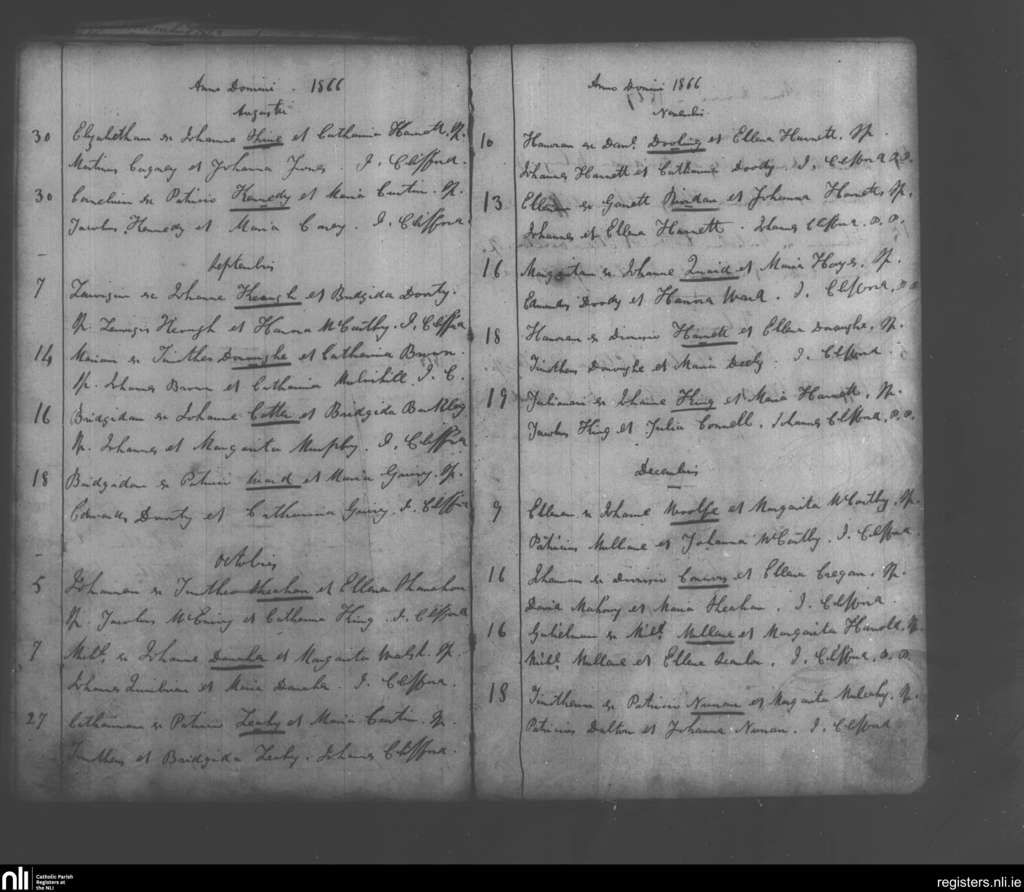 Anno Domini . 1866
Augusti
30 Elizabetham ex Johanne Shine et Catharina Harnett. Sp.
Johanna Jones. J. Clifford.
30 Cornelium ex Patricio Kennedy et Maria Curtin. Sp.
Jacobus Kennedy et Maria Carey. J. Clifford
Septembris
7 ex Johanne Keough et Bridgida
Sp. Keough et Hanora McCarthy. J. Clifford
14 Mariam ex Timotheo Donoghue et Catharina Brown.
Sp. Johannes Brown et Catharina Mulvihill J. C.
16 Bridgidam ex Johanne Cotter et Bridgida
Sp. Johannes et Margarita Murphy. J. Clifford
18 Bridgidam ex Patricio Ward et Maria Sp.
Edwardus et Catharina J. Clifford
Octobris
5 Johannem ex Timotheo Sheahan et Ellena Shanahan
Sp. Jacobus McEniry et Catharina King. J. Clifford
7 Michl. ex Johanne Danaher et Margarita Walsh. Sp.
Johannes Quinlivan et Maria Danaher. J. Clifford.
27 Catharinam ex Patricio Leahy et Maria Curtin. Sp.
Timotheus et Bridgida Leahy. Johannes Clifford.
Anno Domini 1866
Novembris
10 Hanoram ex Danl. Dooling et Ellena Harnett. Sp.
Johannes Harnett et Catharina Doody. J. Clifford
13 Ellenam ex Garrett Riordan et Johanna Harnett. Sp.
Johannes et Ellena Harnett. Johannes Clifford.
16 Margaritam ex Johanne Quaid et Maria Hayes. Sp.
Edmundus Doody et Hanora Ward. J. Clifford.
18 Hanoram ex Dionysio Harnett et Ellena Donoghue. Sp.
Timotheus Donoghue et Maria J. Clifford
19 Julianam ex Johanne King et Maria Harnett. Sp.
Jacobus King et Julia Connell. Johannes Clifford.
Decembris
9 Ellenam ex Johanne Woolfe et Margarita McCarthy. Sp.
Patricius Mullane et Johanna McCarthy. J. Clifford
16 Johannem ex Dionysio Connors et Ellena Cregan. Sp.
David Mahony et Maria Sheahan. J. Clifford
16 Gulielmum ex Michl. Mullane et Margarita Harold. Sp
Michl. Mullane et Ellena J. Clifford.
18 Timotheum ex Patricio Nunan et Margarita Mulcahy. Sp.
Patricius Dalton et Johanna Nunan. J. Clifford
nli
Catholic Parish
Registers at
the NLI
registers.nli.ie